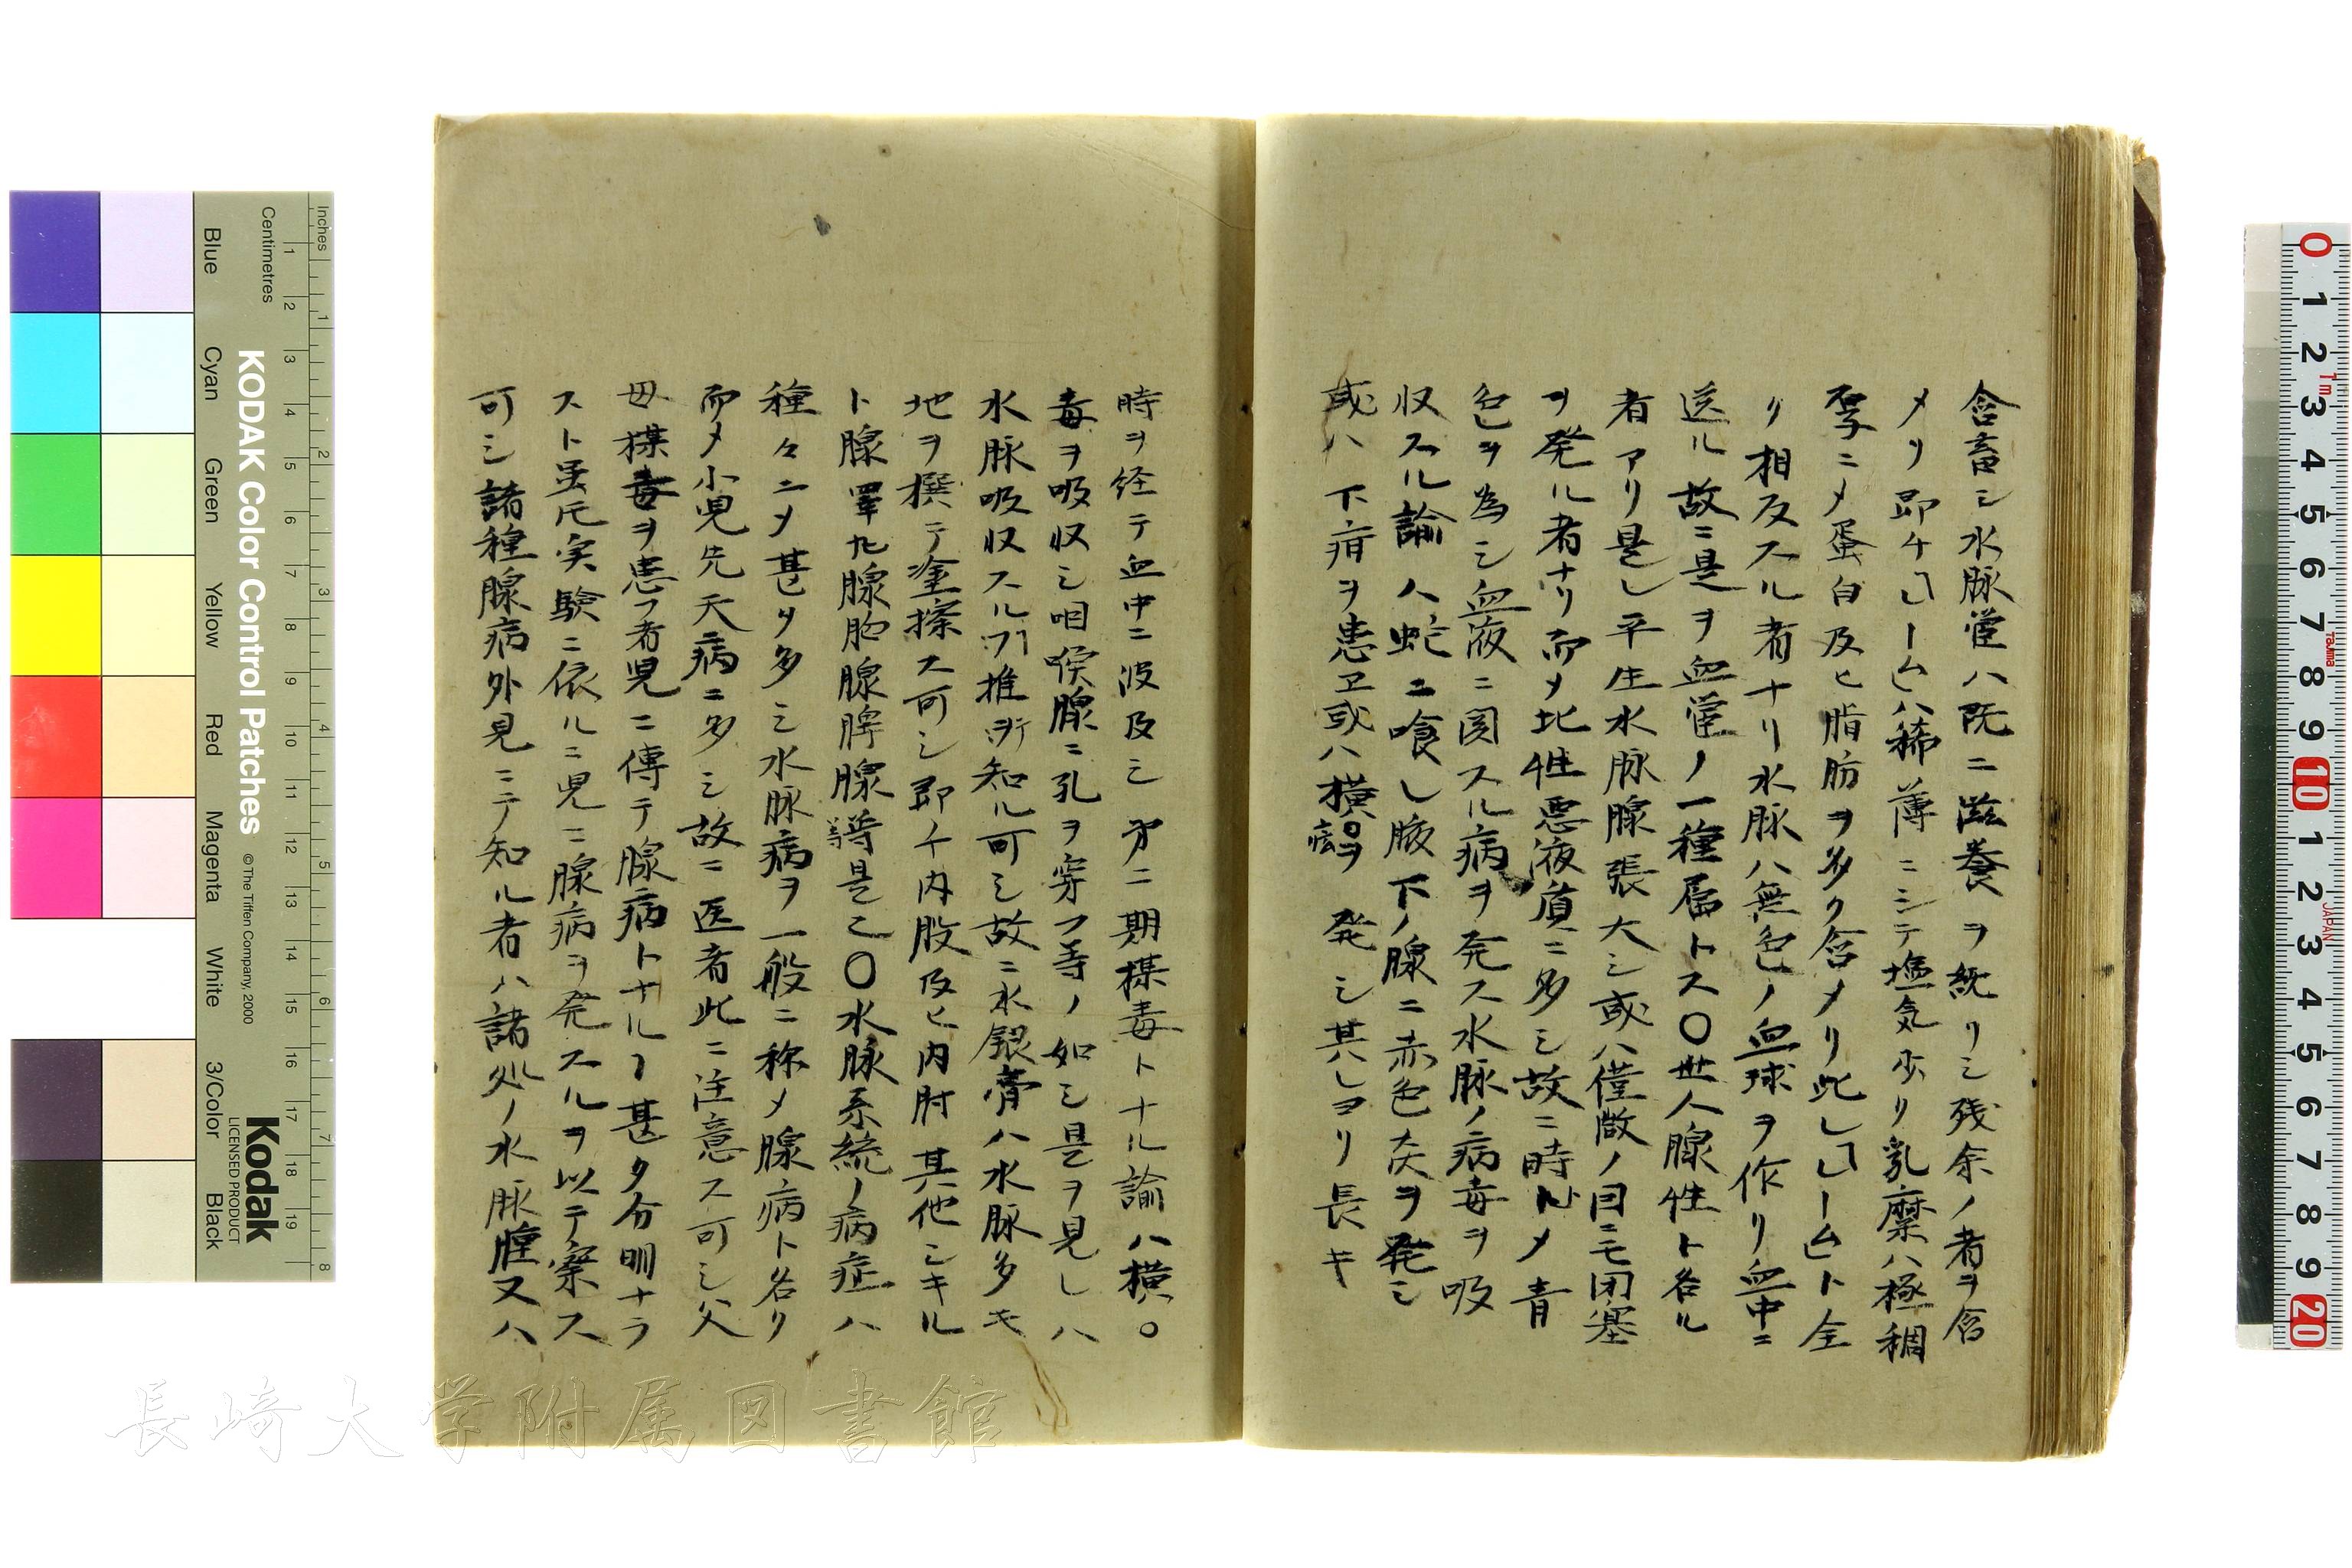 含畜シ水脉管ハ既ニ滋養ヲ終リシ残余ノ者ヲ含
メリ即チ「レームハ稀薄ニシテ塩気少リ乳糜ハ極稠
厚ニメ蛋白及ヒ脂肪ヲ多ク含メリ此レ「レームト全
リ相反スル者ナリ水脉ハ無色ノ血球ヲ作リ血中ニ
送ル故ニ是ヲ血管ノ一種属トス〇世人腺性ト名ル
者アリ是レ平生水脉腺張大シ或ハ僅微ノ因ニモ閉塞
ヲ発ル者ナリ而メ此性悪液質ニ多シ故ニ時トメ青
色ヲ為シ血液ニ関スル病ヲ発ス水脉ノ病毒ヲ吸
収スル諭ハ蛇ニ喰レ腋下ノ腺ニ赤色炎ヲ発シ
或ハ下疳ヲ患ヱ或ハ横〇ヲ発シ其レヨリ長キ
痃
時ヲ経テ血中ニ波及シ第二期楳毒トナル諭ハ横〇
毒ヲ吸収シ咽喉腺ニ孔ヲ穿ツ等ノ如シ是ヲ見レハ
水脉吸収スル所推テ知ル可シ故ニ水銀膏ハ水脉多キ
地ヲ撰テ塗擦ス可シ即チ内股及ヒ内肘其他シキル
ト腺睾丸腺肋腺脾腺等是乙〇水脉系統ノ病症ハ
種々ニメ甚タ多シ水脉病ヲ一般ニ称メ腺病ト名リ
而メ小児先天病ニ多シ故ニ医者此ニ注意ス可シ父
母楳毒ヲ患フ者児ニ傳テ腺病トナルヿ甚タ分明ナラ
スト雖𪜈実験ニ依ルニ児ニ腺病ヲ発スルヲ以テ察ス
可シ諸種腺病外見ニテ知ル者ハ諸処ノ水脉腫又ハ
Inches
Centimetres
Blue
Cyan
Green
Yellow
Red
Magenta
White
3/Color
Black
KODAK Color Control Patches
© The Tiffen Company, 2000
Kodak
LICENSED PRODUCT
長崎大学附属図書館